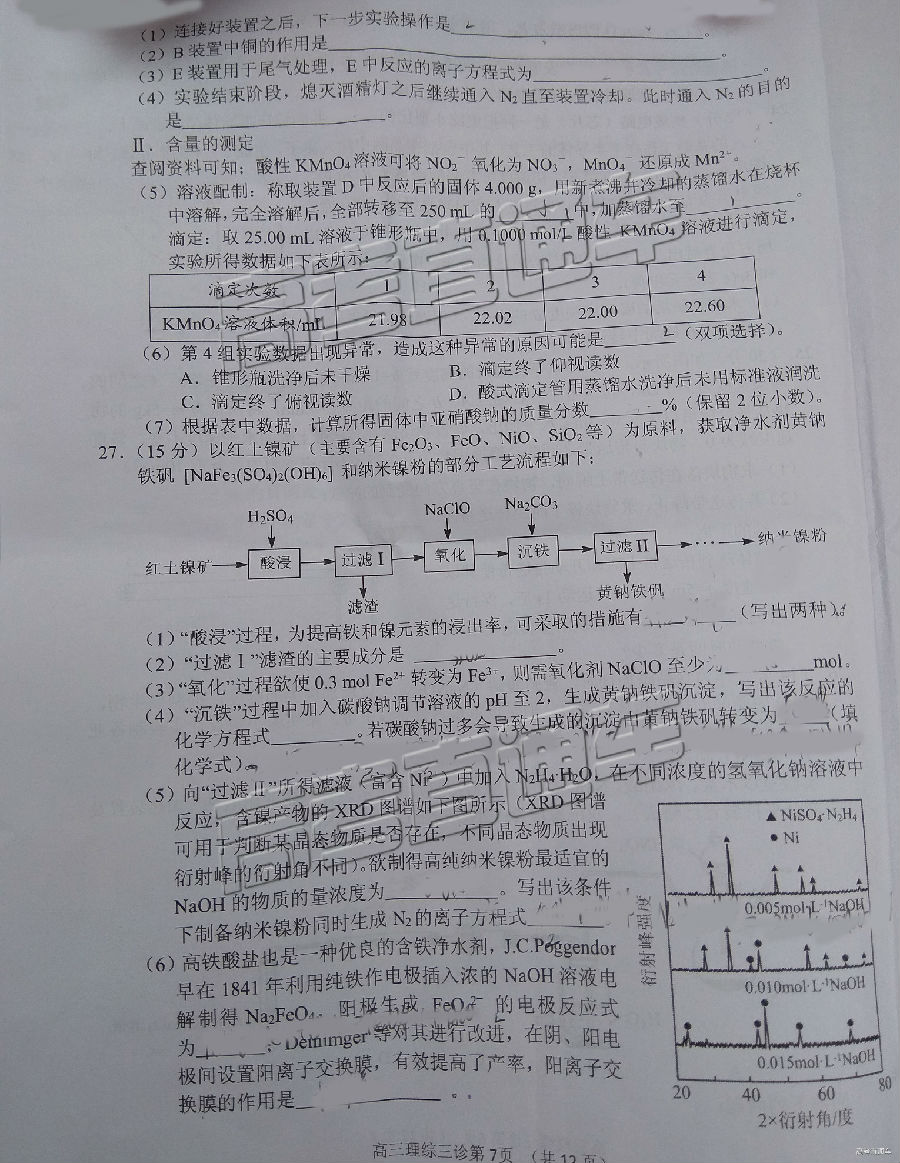 (1) 连接好装置之后，下一步实验操作是____。
(2) B装置中铜的作用是____。
(3) E装置用于尾气处理，E中反应的离子方程式为____。
(4) 实验结束阶段，熄灭酒精灯之后继续通入 N₂ 直至装置冷却。此时通入 N₂ 的目的
是____。
Ⅱ．含量的测定
查阅资料可知：酸性 KMnO₄ 溶液可将 NO₂⁻ 氧化为 NO₃⁻，MnO₄⁻ 还原成 Mn²⁺。
(5) 溶液配制：称取装置 D 中反应后的固体 4.000 g，用新煮沸并冷却的蒸馏水在烧杯
中溶解，完全溶解后，全部转移至 250 mL 的____中，加蒸馏水至____。
滴定：取 25.00 mL 溶液于锥形瓶中，用 0.1000 mol/L 酸性 KMnO₄ 溶液进行滴定，
实验所得数据如下表所示：
滴定次数 1 2 3 4
KMnO₄ 溶液体积/mL 21.98 22.02 22.00 22.60
(6) 第 4 组实验数据出现异常，造成这种异常的原因可能是____（双项选择）。
A．锥形瓶洗净后未干燥 B．滴定终了仰视读数
C．滴定终了俯视读数 D．酸式滴定管用蒸馏水洗净后未用标准液润洗
(7) 根据表中数据，计算所得固体中亚硝酸钠的质量分数____%（保留 2 位小数）。
27.（15 分）以红土镍矿（主要含有 Fe₂O₃、FeO、NiO、SiO₂ 等）为原料，获取净水剂黄钠
铁矾 [NaFe₃(SO₄)₂(OH)₆] 和纳米镍粉的部分工艺流程如下：
H₂SO₄ NaClO Na₂CO₃
红土镍矿 酸浸 过滤 I 氧化 沉铁 过滤 II ······ 纳米镍粉
滤渣 黄钠铁矾
(1) “酸浸”过程，为提高铁和镍元素的浸出率，可采取的措施有____（写出两种）。
(2) “过滤 I”滤渣的主要成分是____。
(3) “氧化”过程欲使 0.3 mol Fe²⁺ 转变为 Fe³⁺，则需氧化剂 NaClO 至少为____mol。
(4) “沉铁”过程中加入碳酸钠调节溶液的 pH 至 2，生成黄钠铁矾沉淀，写出该反应的
化学方程式____。若碳酸钠过多会导致生成的沉淀由黄钠铁矾转变为____（填
化学式）。
(5) 向“过滤 II”所得滤液（富含 Ni²⁺）中加入 N₂H₄·H₂O，在不同浓度的氢氧化钠溶液中
反应，含镍产物的 XRD 图谱如下图所示（XRD 图谱
可用于判断某晶态物质是否存在，不同晶态物质出现
衍射峰的衍射角不同）。欲制得高纯纳米镍粉最适宜的
NaOH 的物质的量浓度为____。写出该条件
下制备纳米镍粉同时生成 N₂ 的离子方程式____
(6) 高铁酸盐也是一种优良的含铁净水剂，J.C.Poggendor
早在 1841 年利用纯铁作电极插入浓的 NaOH 溶液电
解制得 Na₂FeO₄，阳极生成 FeO₄²⁻ 的电极反应式
为____；Deininger 等对其进行改进，在阴、阳电
极间设置阳离子交换膜，有效提高了产率，阳离子交
换膜的作用是____。
▲ NiSO₄·N₂H₄
● Ni
0.005mol·L⁻¹NaOH
0.010mol·L⁻¹NaOH
0.015mol·L⁻¹NaOH
衍射峰强度
20 40 60 80
2×衍射角/度
高三理综三诊第 7 页 （共 12 页）
高考直通车
高考直通车